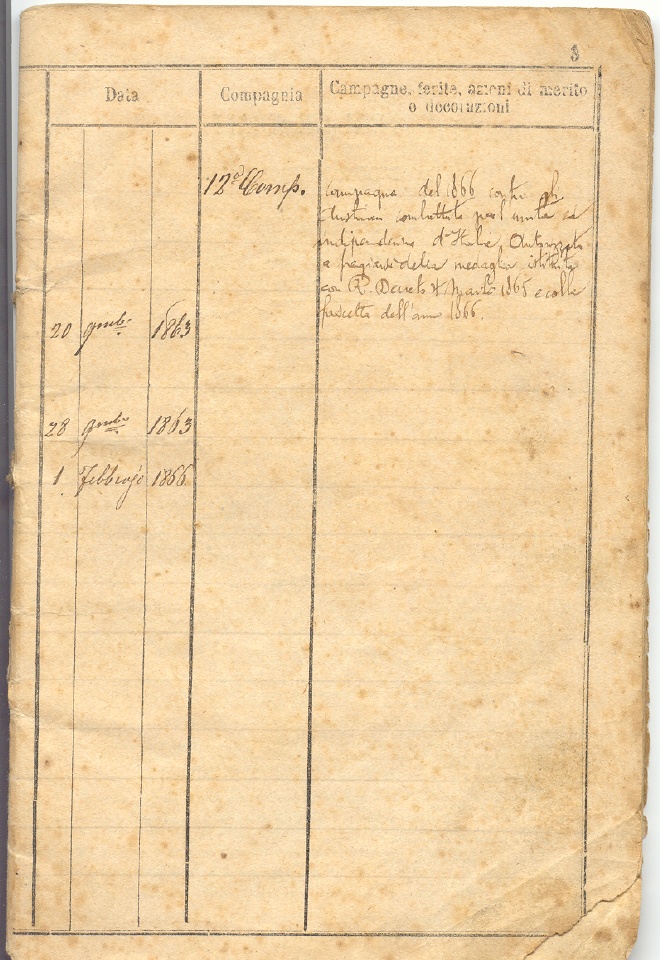 3
Data
Compagnia
Campagne, ferite, azioni di merito
o decorazioni
12ª Comp.
Campagna del 1866 contro gli
Austriaci combattuta per l'unità ed
indipendenza d'Italia, Autorizzato
a fregiarsi della medaglia istituita
con R. Decreto 4 Marzo 1865 e colla
fascetta dell'anno 1866.
20 9mbe 1863
28 9mbe 1863
1 Febbrajo 1866